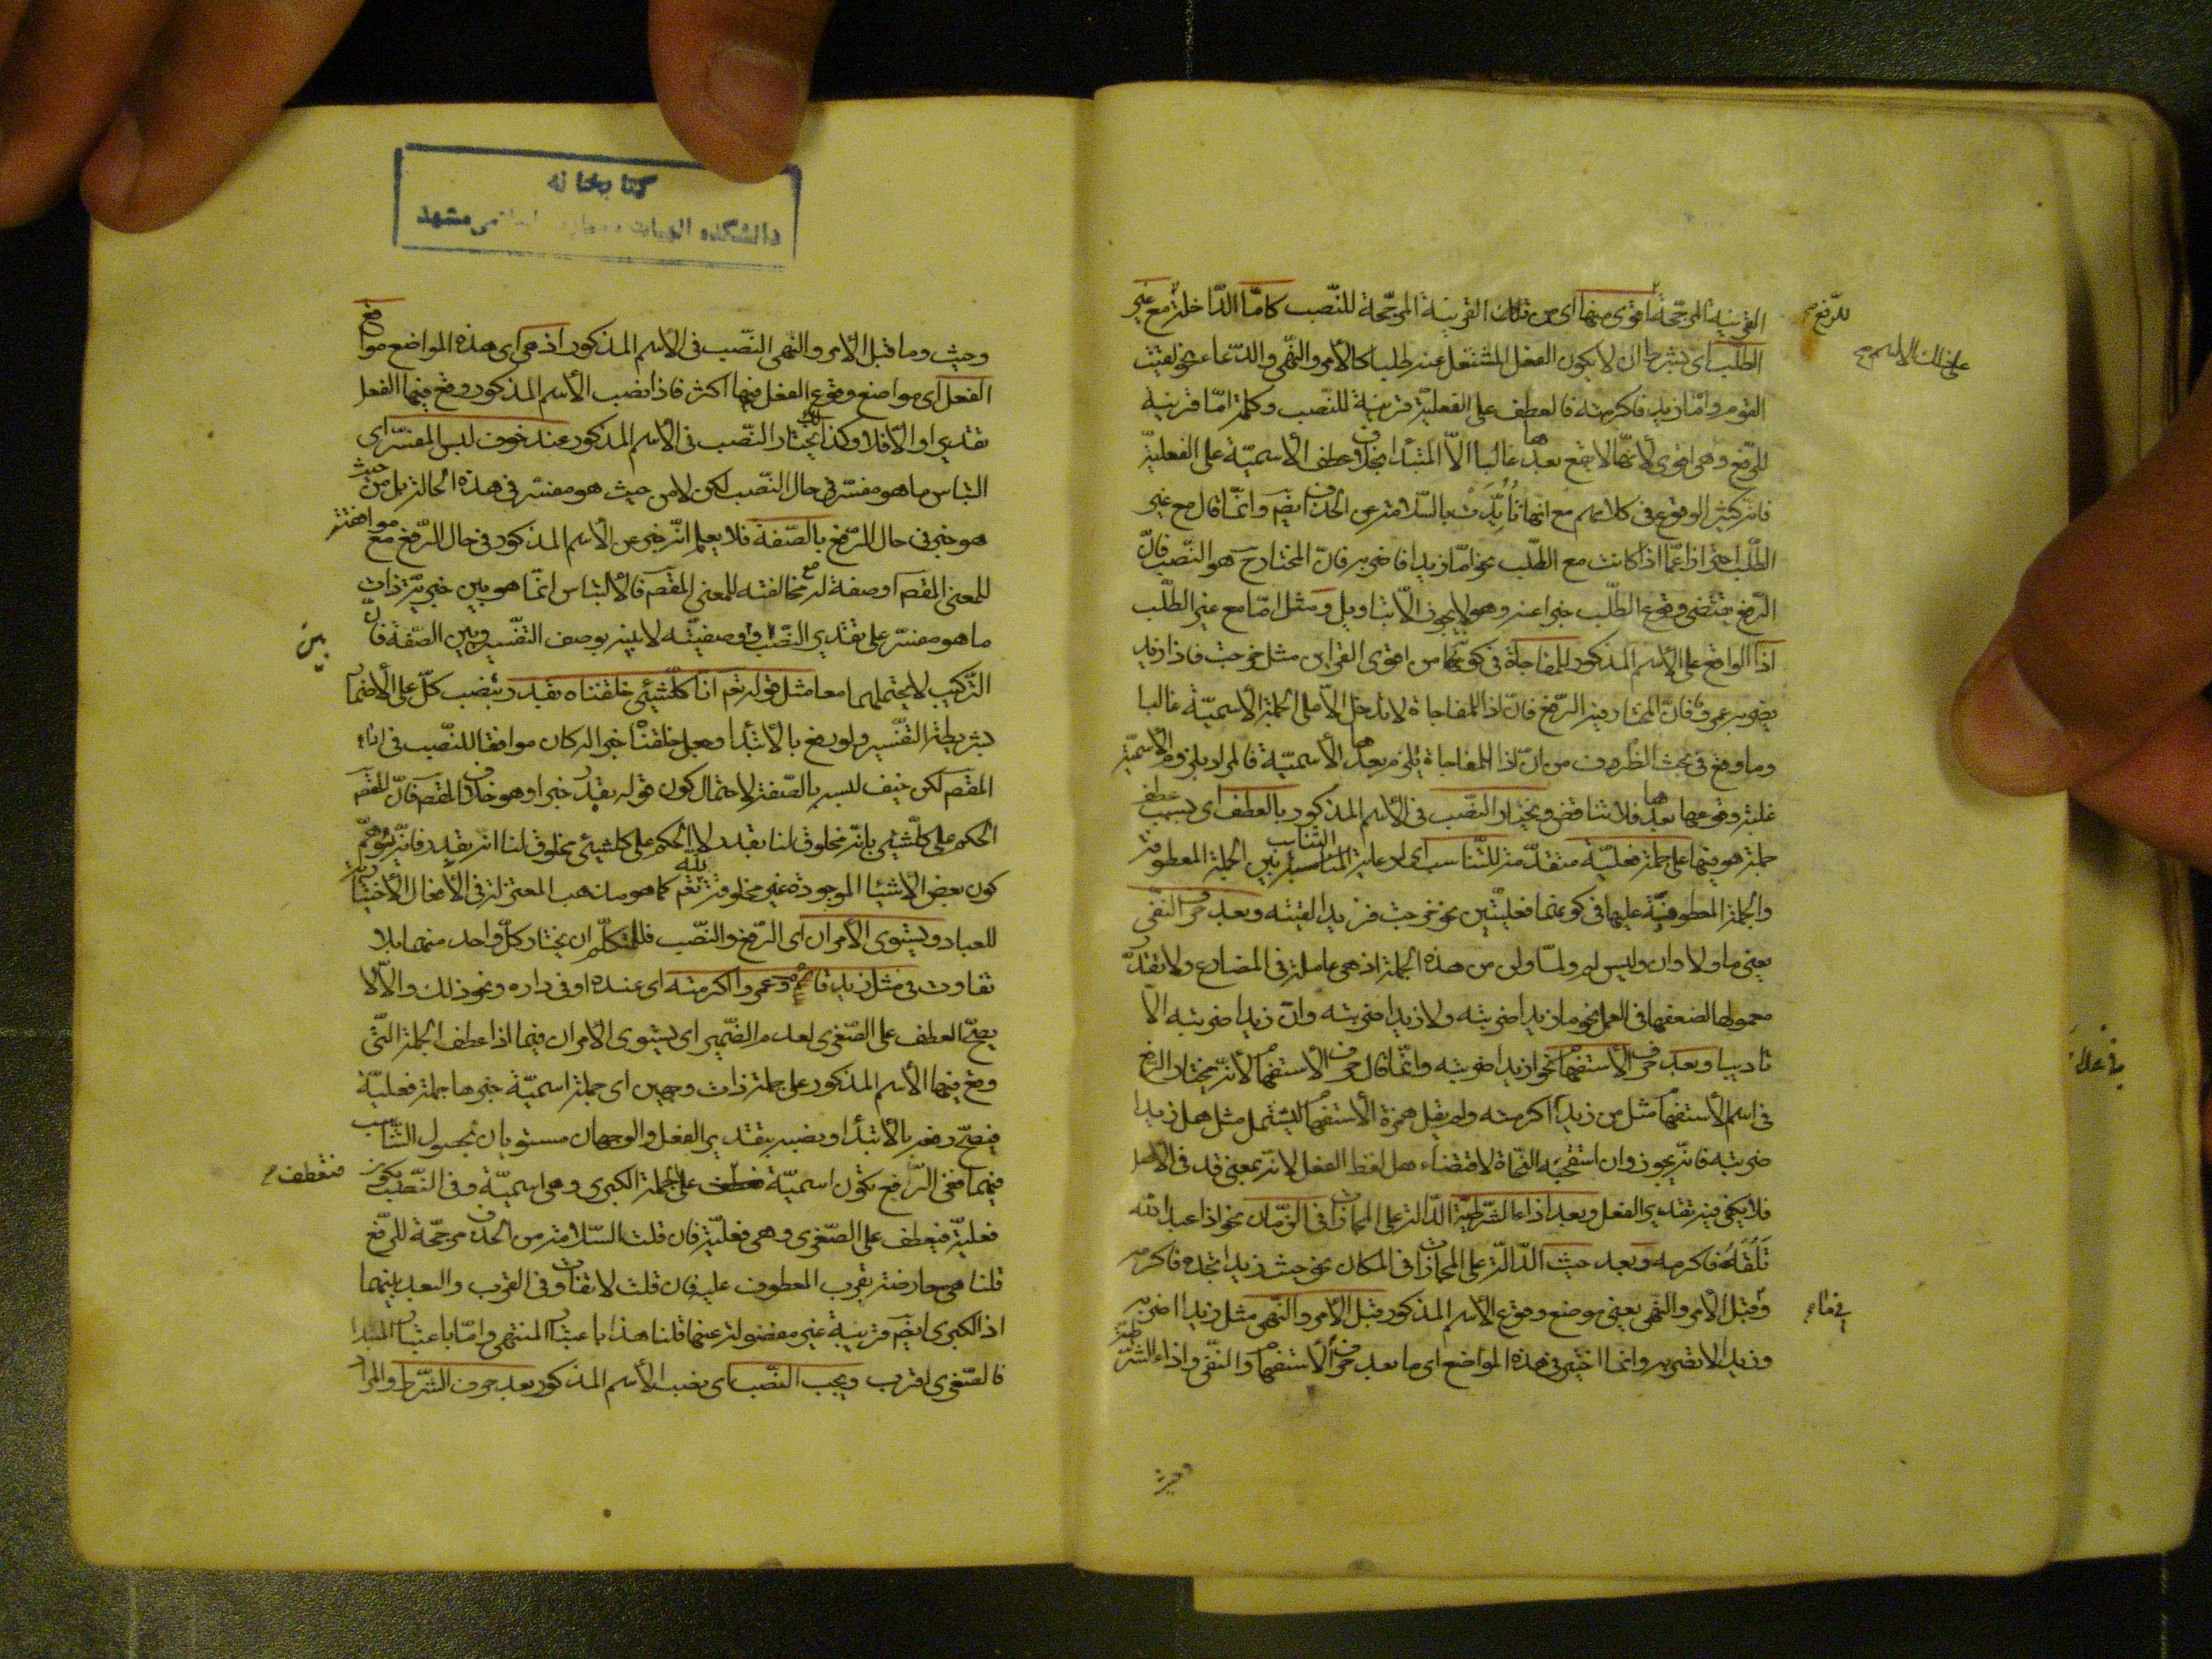 القرينة المرجحة اقوى منها اى من تلك القرينة المرجحة للنصب كامّا الداخلة مع غير
للرفع
على ذلك الاسم
الطلب اى بشرط ان لا يكون الفعل المشتغل عنه طلبا كالامر والنهى والدعا نحو لقيت
القوم وامّا زيد فاكرمته فالعطف على الفعلية قرينة للنصب وكلمة امّا قرينة
للرفع وهى اقوى لانها لا يقع بعدها غالبا الّا المبتدا بخلاف عطف الاسمية على الفعلية
فانه كثير الوقوع فى كلامهم مع انها تأيّدت بالسلامة عن الحذف ايضا وانما قال مع غير
الطلب احترازا عما اذا كانت مع الطلب نحو امّا زيدا فاضربه فان المختار ح هو النصب فانّ
الرفع يقتضى وقوع الطلب خبرا عنه وهو لا يجوز الّا بتاويل ومثل امّا مع غير الطلب
اذا الواقع على الاسم المذكور للمفاجاة فى كونها من اقوى القراين مثل خرجت فاذا زيد
يضربه عمرو فانّ المختار فيه الرفع فانّ اذا للمفاجاة لا تدخل الّا على الجملة الاسمية غالبا
وما وقع فى بحث الظروف من انّ اذا للمفاجاة يلزم بعدها الاسمية فالمراد بلزوم الاسمية
غلبة وقوعها بعدها فلا تناقض ويختار النصب فى الاسم المذكور بالعطف اى بسبب عطف
جملة هو فيها على جملة فعلية متقدمة للتناسب اى لرعاية التناسب بين الجملة المعطوفة
والجملة المعطوفة عليها فى كونهما فعليتين نحو خرجت فزيدا لقيته وبعد حرف النفى
يعنى ما ولا وان وليس لم ولما ولن من هذه الجملة اذ هى عاملة فى المضارع ولا يقدّر
معمولها لضعفها فى العمل نحو ما زيدا ضربته ولا زيدا ضربته وان زيدا ضربته الّا
تاديبا وبعد حرف الاستفهام نحو ازيدا ضربته وانما قال حرف الاستفهام لانه يختار الرفع
فى اسم الاستفهام مثل من زيدا اكرمته ولم يقل همزة الاستفهام ليشتمل مثل هل زيدا
ضربته فانه يجوز وان استقبحه النحاة لاقتضاء هل لفظ الفعل لانه بمعنى قد فى الاصل
فلا يكفى فيه تقدير الفعل وبعد اذا الشرطية الدالة على المجازاة فى الزمان نحو اذا عبد الله
تلقه فاكرمه وبعد حيث الدالة على المجازاة فى المكان نحو حيث زيدا تجده فاكرمه
وقبل الامر والنهى يعنى موضع وقوع الاسم المذكور قبل الامر والنهى مثل زيدا اضربه
وزيدا لا تضربه وانما اختير فى هذه المواضع اى ما بعد حرف الاستفهام والنفى واذا الشرطية
وحيث
كتابخانه
دانشكده الهيات مشهد
وحيث وما قبل الامر والنهى النصب فى الاسم المذكور اذ هى اى هذه المواضع مواقع
الفعل اى مواضع وقوع الفعل فيها اكثر فاذا نصب الاسم المذكور وقع فيها الفعل
تقديرا والّا فلا وكذلك يختار النصب فى الاسم المذكور عند خوف لبس المفسر اى
التباس ما هو مفسر فى حال النصب لكن لا من حيث هو مفسر فى هذه الحالة بل من حيث
هو خبر فى حال الرفع بالصفة فلا يعلم انه خبر عن الاسم المذكور فى حال الرفع مع موافقته
للمعنى المقصود او صفة له مع مخالفته للمعنى المقصود فالالتباس انما هو بين خبرية ذات
ما هو مفسر على تقدير النصب ووصفيته لا بينه بوصف التفسير وبين الصفة فانّ
التركيب لا يحتملهما معا مثل قوله تعالى انا كلّ شىء خلقناه بقدر بنصب كلّ على الاضمار
بشريطة التفسير ولو رفع بالابتدا وجعل خلقناه خبرا له كان موافقا للنصب فى اداء
المقصود لكن خيف لبسه بالصفة لاحتمال كون قوله بقدر خبرا وهو خلاف المقصود فانّ المقصود
الحكم على كلّ شىء بانه مخلوق لنا بقدر لا الحكم على كل شىء مخلوق لنا انه بقدر فانه يوهم
كون بعض الاشياء الموجودة غير مخلوقة لله تعالى كما هو مذهب المعتزلة فى الافعال الاختيارية
للعباد ويستوى الامران اى الرفع والنصب فللمتكلم ان يختار كلّ واحد منهما بلا
تفاوت فى مثل زيد قام وعمروا اكرمته اى عنده او فى داره ونحو ذلك والّا لا
يصحّ العطف على الصغرى لعدم الضمير اى يستوى الامران فيما اذا عطف الجملة التى
وقع فيها الاسم المذكور على جملة ذات وجهين اى جملة اسمية خبرها جملة فعلية
فيصحّ رفعه بالابتدا ونصبه بتقدير الفعل والوجهان مستويان بحصول التناسب
فيهما ففى الرفع يكون اسمية فتعطف على الجملة الكبرى وهى اسمية وفى النصب يكون
فتعطف
فعلية فيعطف على الصغرى وهى فعلية فان قلت السلامة من الحذف مرجحة للرفع
قلنا هى معارضة بقرب المعطوف عليه فان قلت لا تفاوت فى القرب والبعد بينهما
اذ الكبرى ايضا قريبة غير مفصولة عنهما قلنا هذا باعتبار المنتهى وامّا باعتبار المبتدا
فالصغرى اقرب ويجب النصب اى نصب الاسم المذكور بعد حرف الشرط والمراد